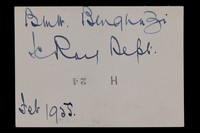 B.M.H. Benghazi
X Ray Dept.
H 24
Feb 1955.